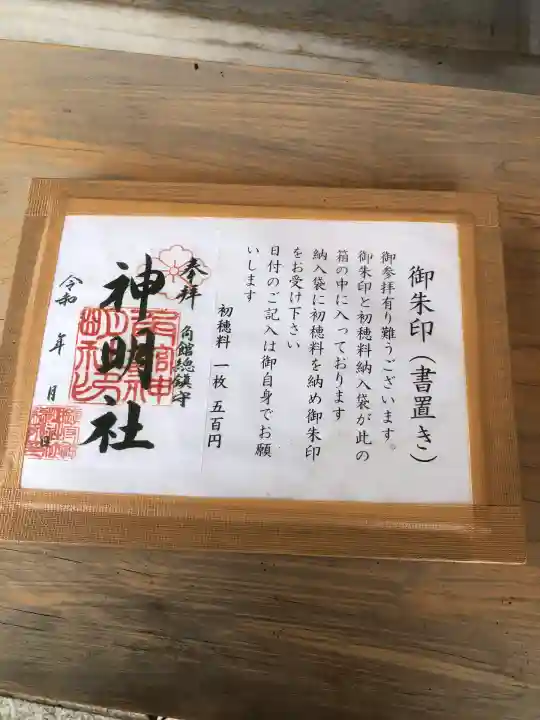 御朱印（書置き）
御参拝有り難うございます。
御朱印と初穂料納入袋が此の
箱の中に入っております
納入袋に初穂料を納め御朱印
をお受け下さい
日付のご記入は御自身でお願
いします
初穂料 一枚 五百円
奉拝 角館總鎮守
神明社
令和 年 月 日